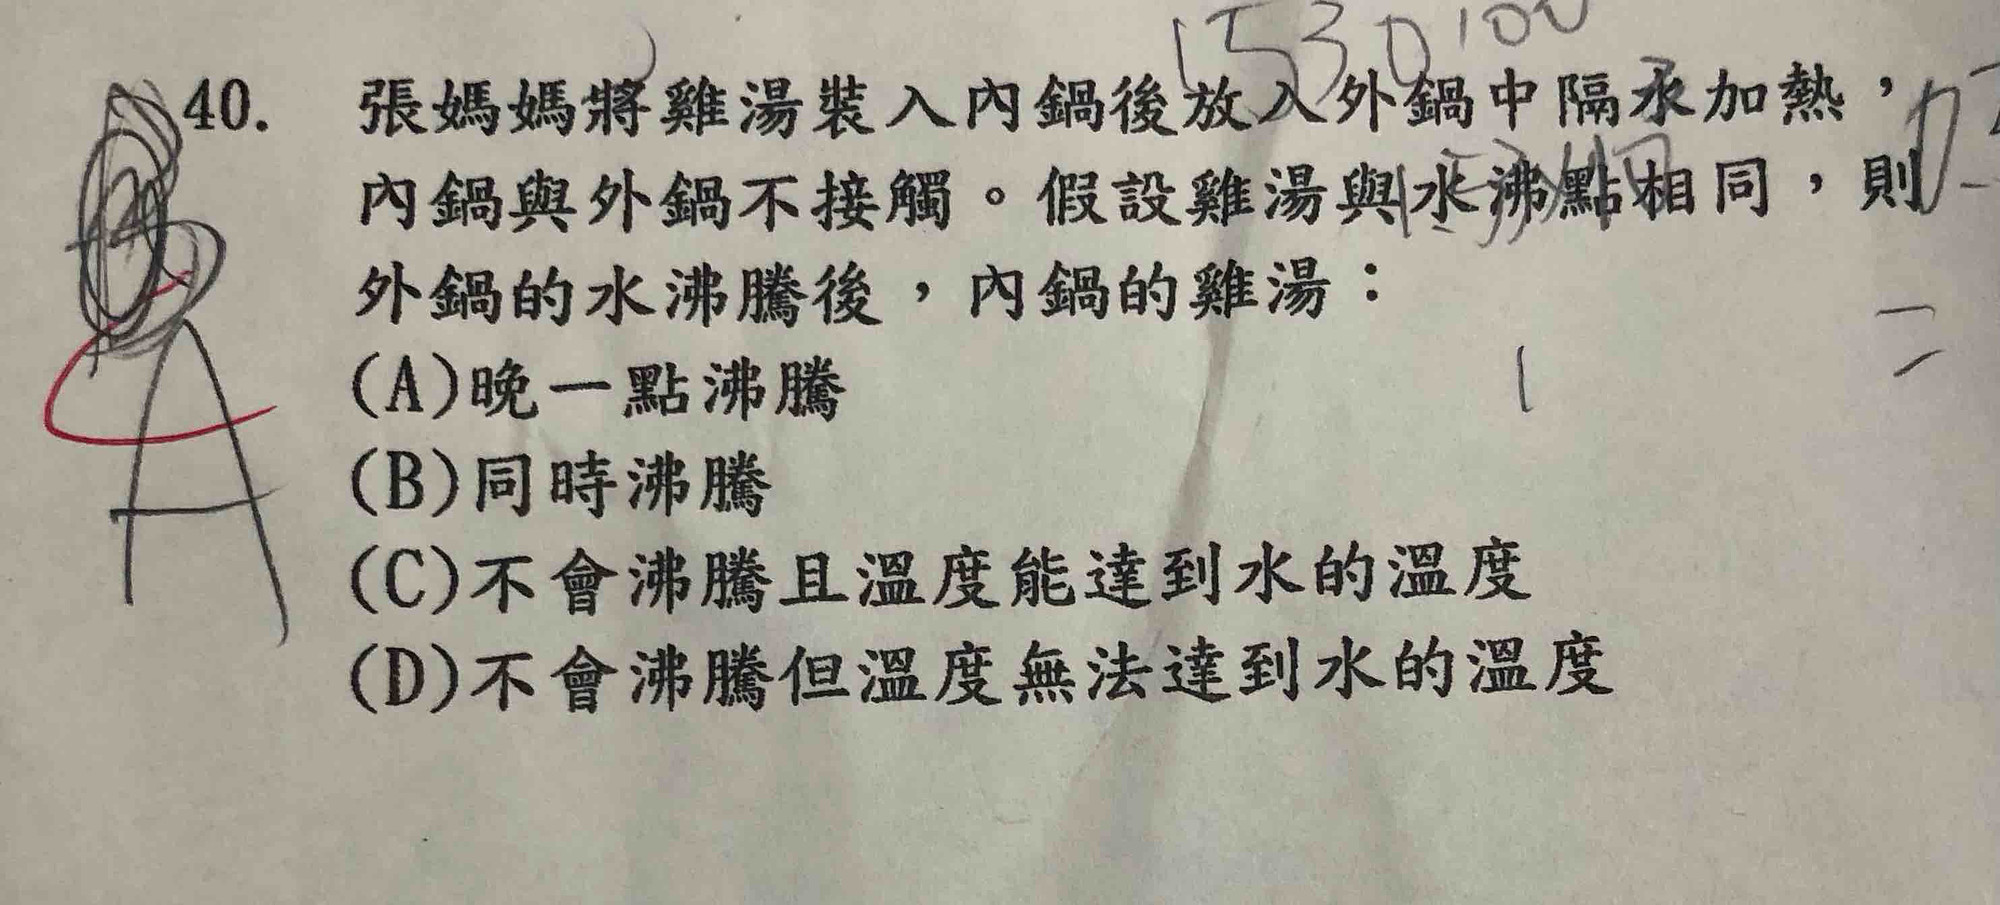 1530 100
40. 張媽媽將雞湯裝入內鍋後放入外鍋中隔水加熱，
內鍋與外鍋不接觸。假設雞湯與水沸點相同，則
外鍋的水沸騰後，內鍋的雞湯：
(A)晚一點沸騰
(B)同時沸騰
(C)不會沸騰且溫度能達到水的溫度
(D)不會沸騰但溫度無法達到水的溫度
A